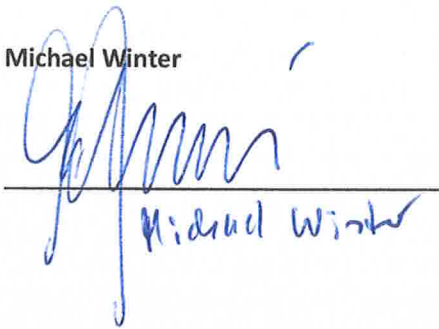 Michael Winter
Michael Winter